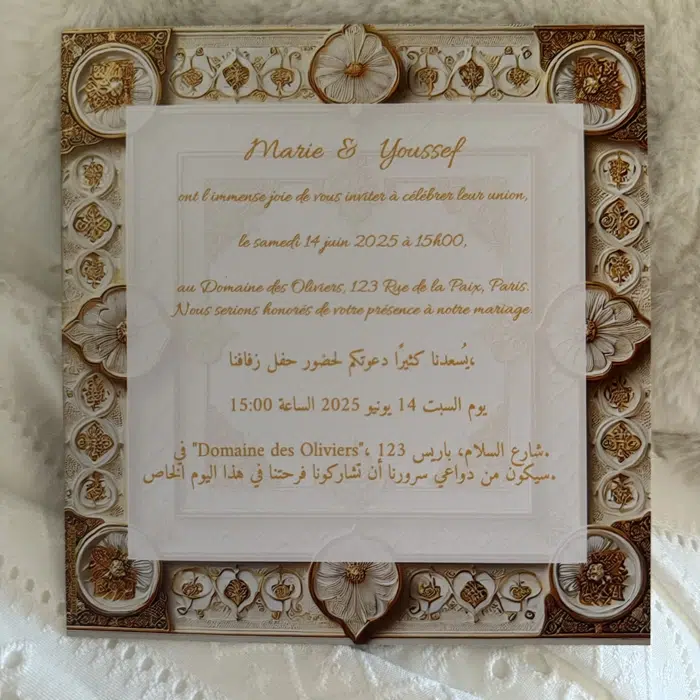 Marie & Youssef
ont l'immense joie de vous inviter à célébrer leur union,
le samedi 14 juin 2025 à 15h00,
au Domaine des Oliviers, 123 Rue de la Paix, Paris.
Nous serions honorés de votre présence à notre mariage.
يُسعدنا كثيرًا دعوتكم لحضور حفل زفافنا،
يوم السبت 14 يونيو 2025 الساعة 15:00
في "Domaine des Oliviers"، 123 شارع السلام، باريس.
سيكون من دواعي سرورنا أن تشاركونا فرحتنا في هذا اليوم الخاص.